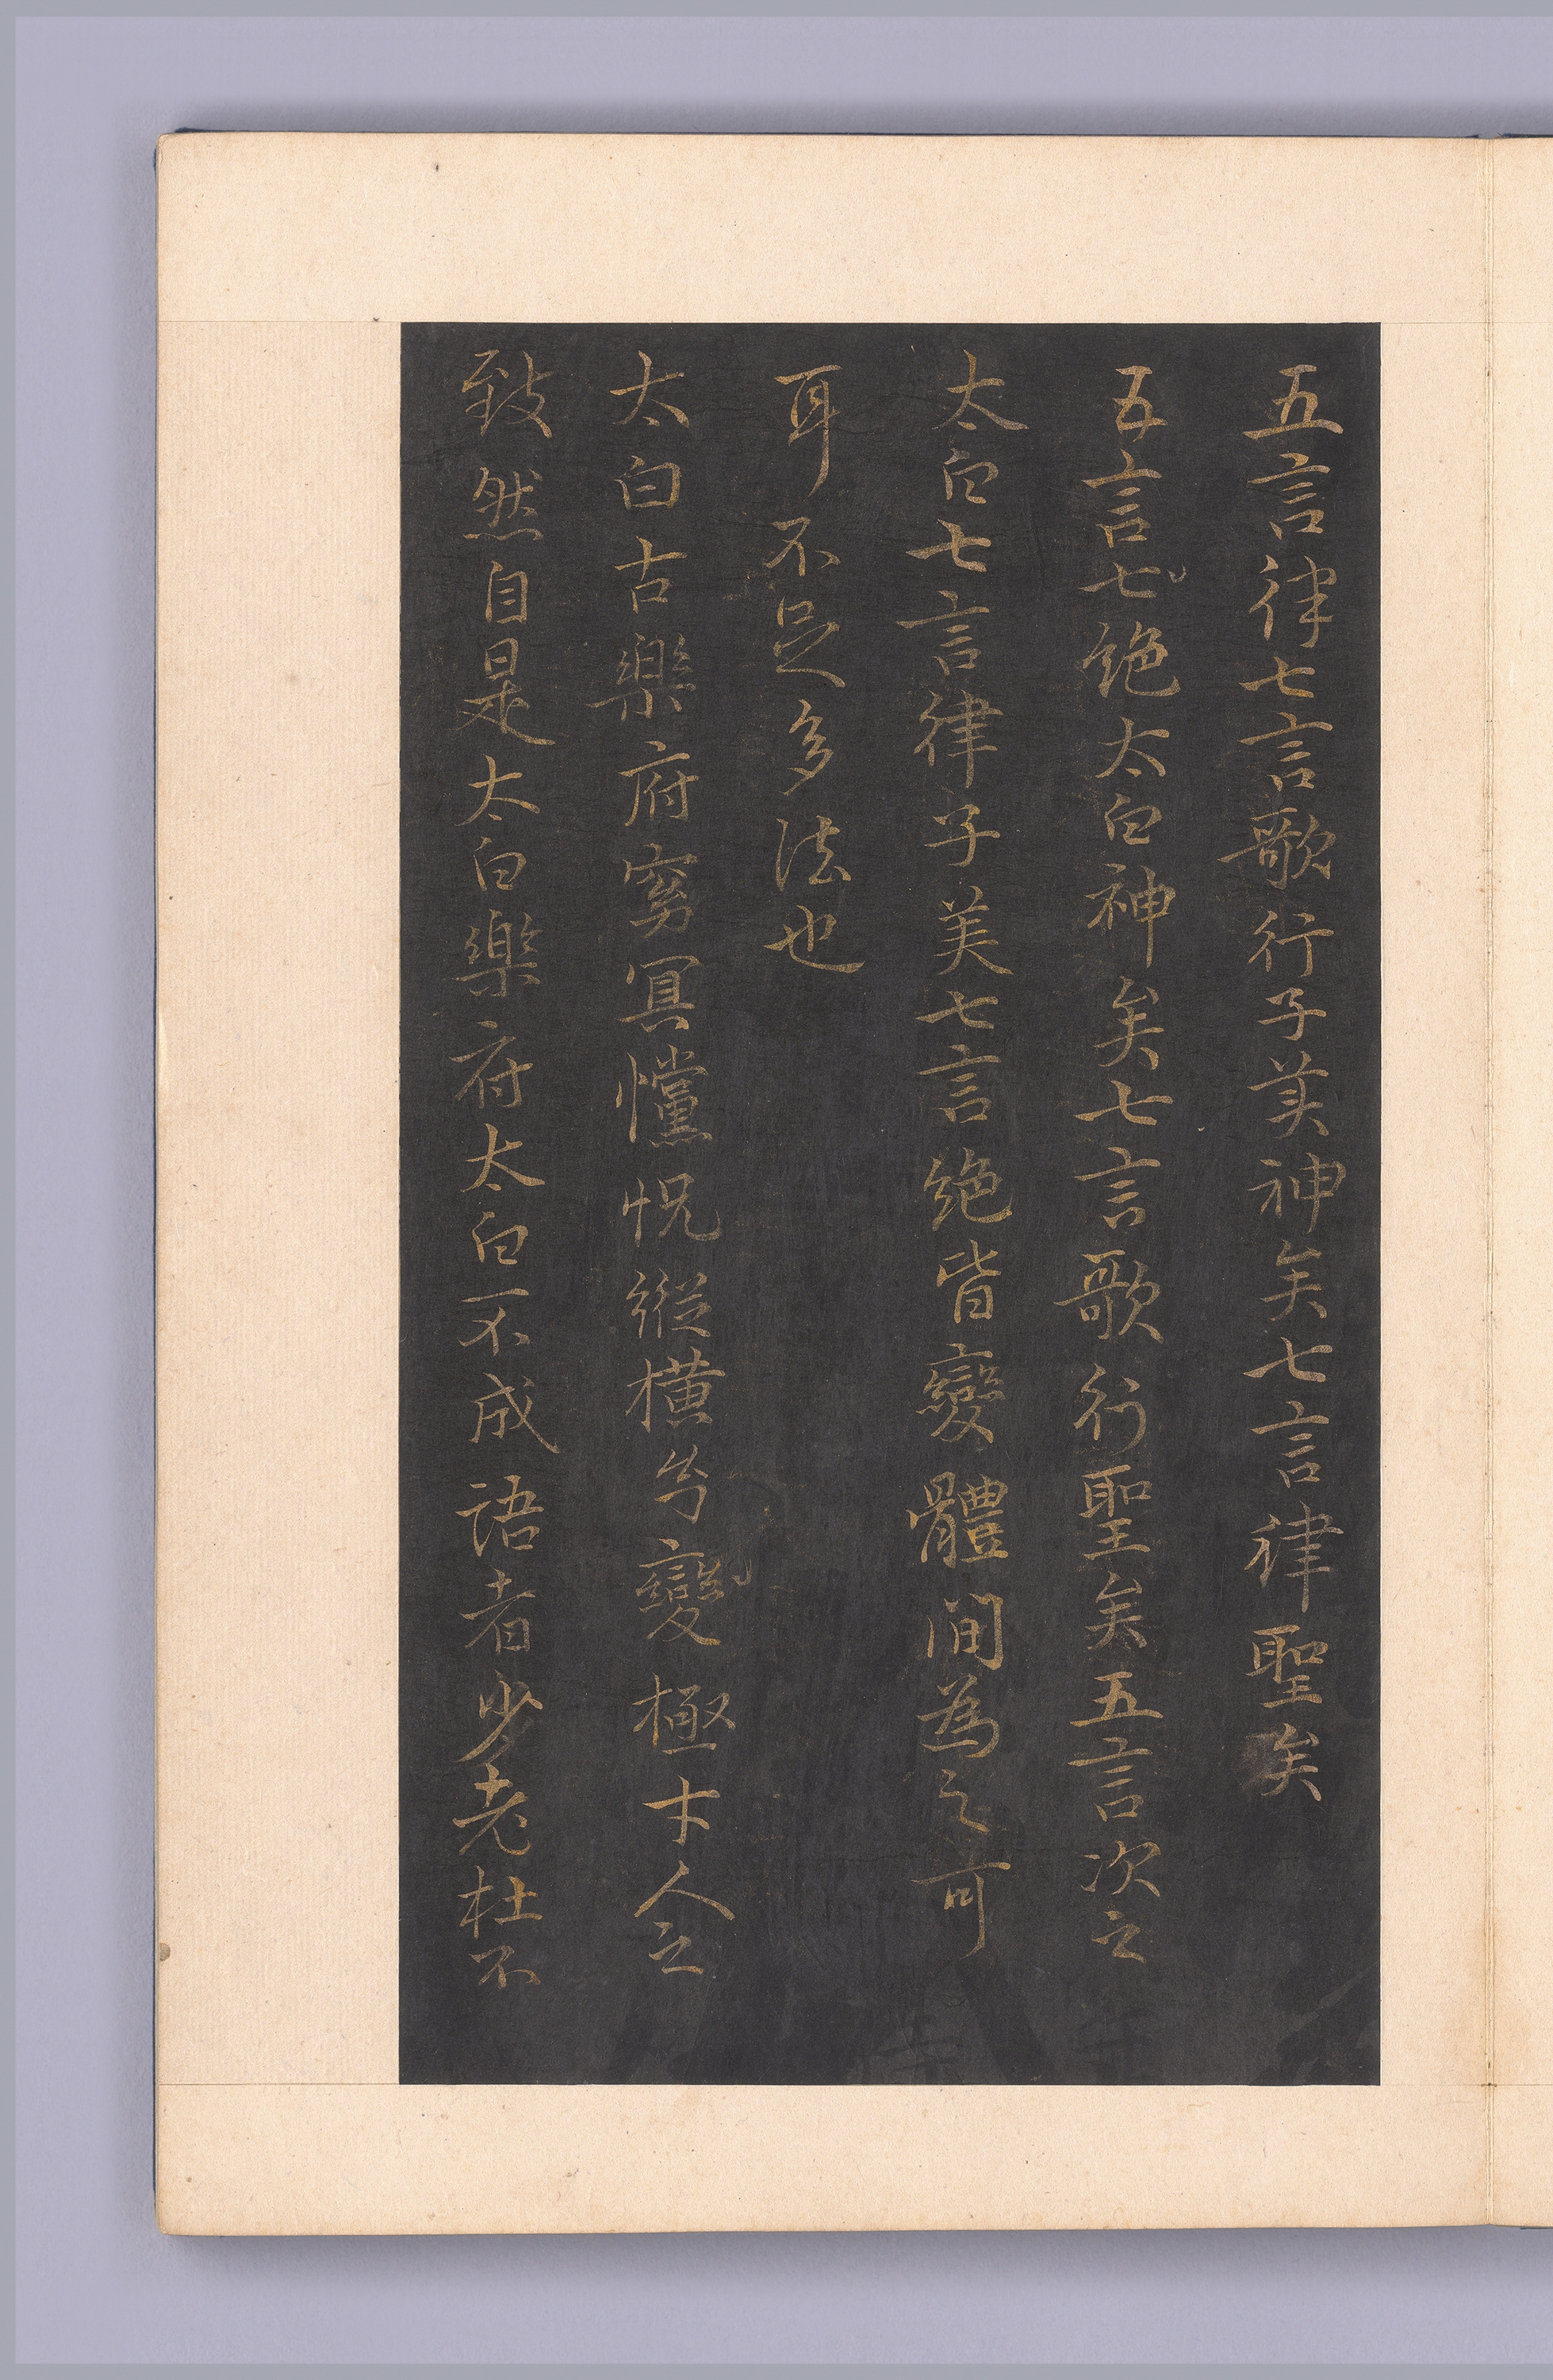 五言律七言歌行子美神矣七言律聖矣
五言七絕太白神矣七言歌行聖矣五言次之
太白七言律子美七言絕皆變體間為之可
耳不足多法也
太白古樂府窈冥儻怳縱橫兮變極才人之
致然自是太白樂府太白不成語者少老杜不